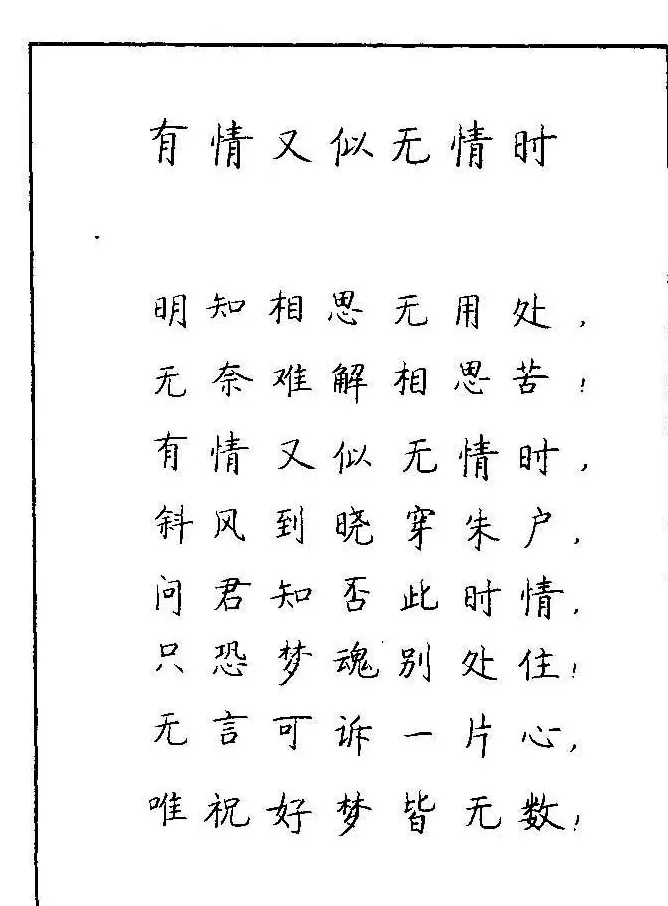 有情又似无情时
明知相思无用处，
无奈难解相思苦！
有情又似无情时，
斜风到晓穿朱户，
问君知否此时情，
只恐梦魂别处住！
无言可诉一片心，
唯祝好梦皆无数！